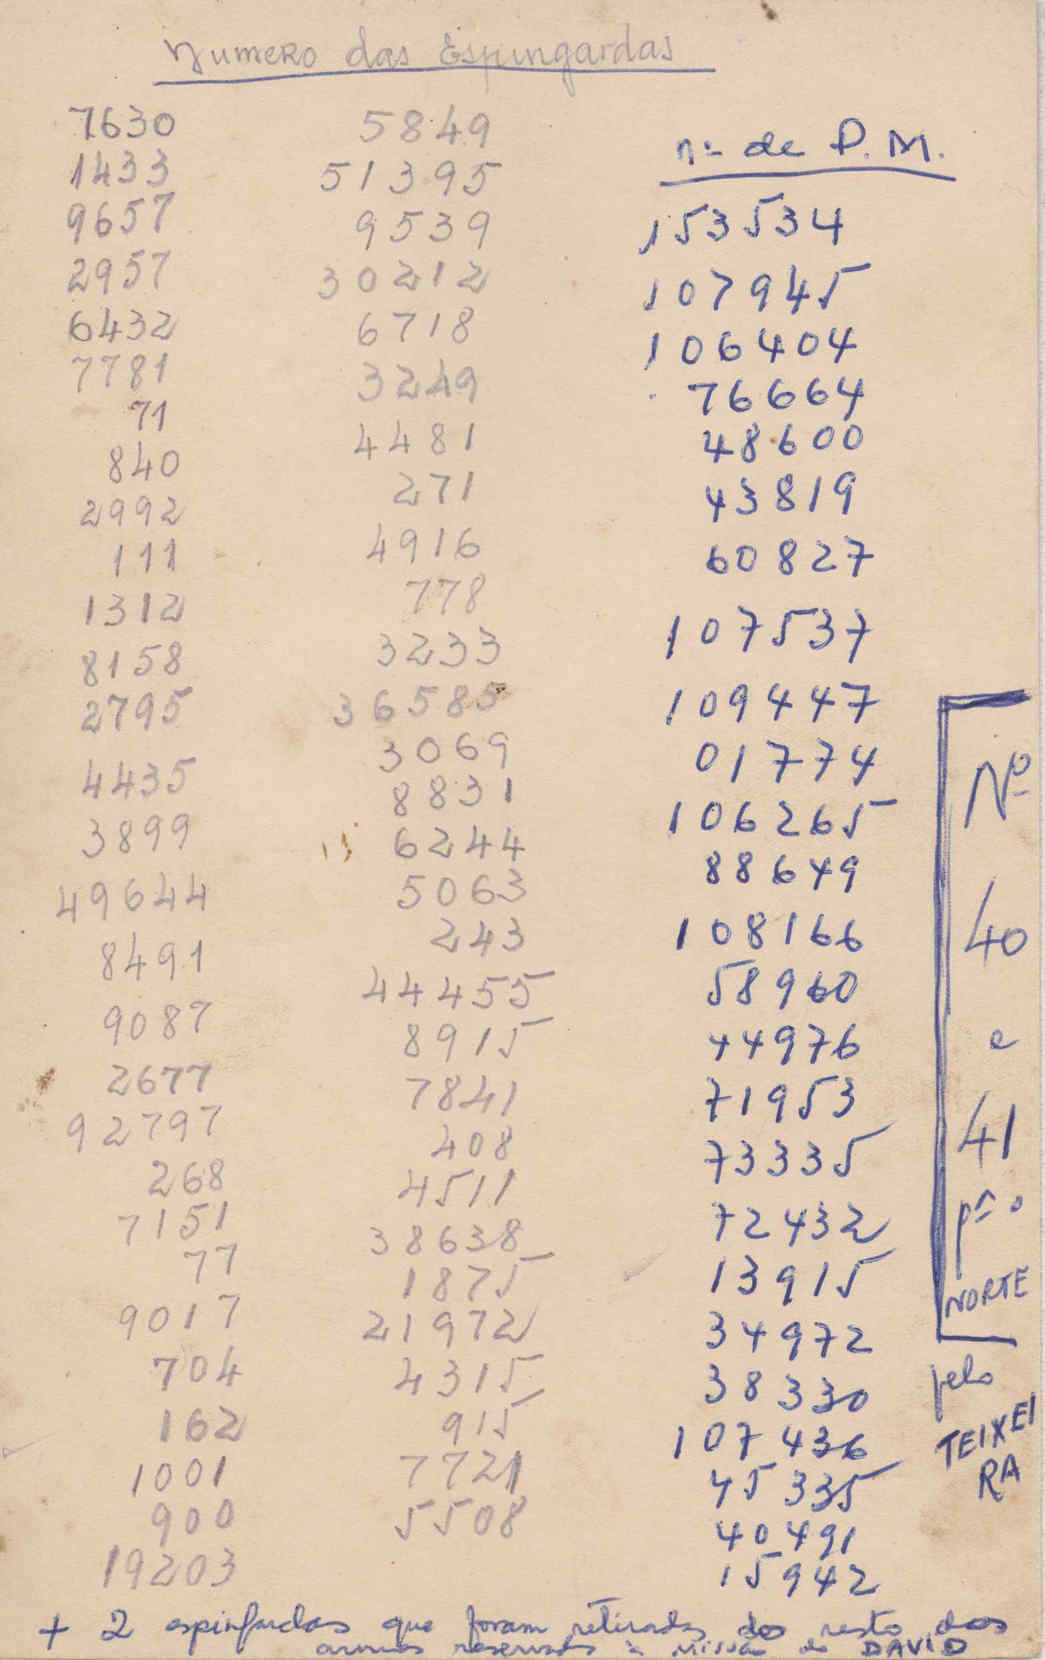 Numero das Espingardas
7630
1433
9657
2957
6432
7781
71
840
2992
111
1312
8158
2795
4435
3899
49644
8491
9087
2677
92797
268
7151
77
9017
704
162
1001
900
19203
5849
51395
9539
30212
6718
3249
4481
271
4916
778
3233
36585
3069
8831
6244
5063
243
44455
8915
7841
408
4511
38638
1875
21972
4315
915
7721
5508
nº de P.M.
153534
107945
106404
76664
48600
43819
60827
107537
109447
01774
106265
88649
108166
58960
44976
71953
73335
72432
13915
34972
38330
107436
45335
40491
15942
Nº
40
e
41
pª o
NORTE
pelo
TEIXEI
RA
+ 2 espingardas que foram retiradas do resto das
armas reservadas à missão do DAVID